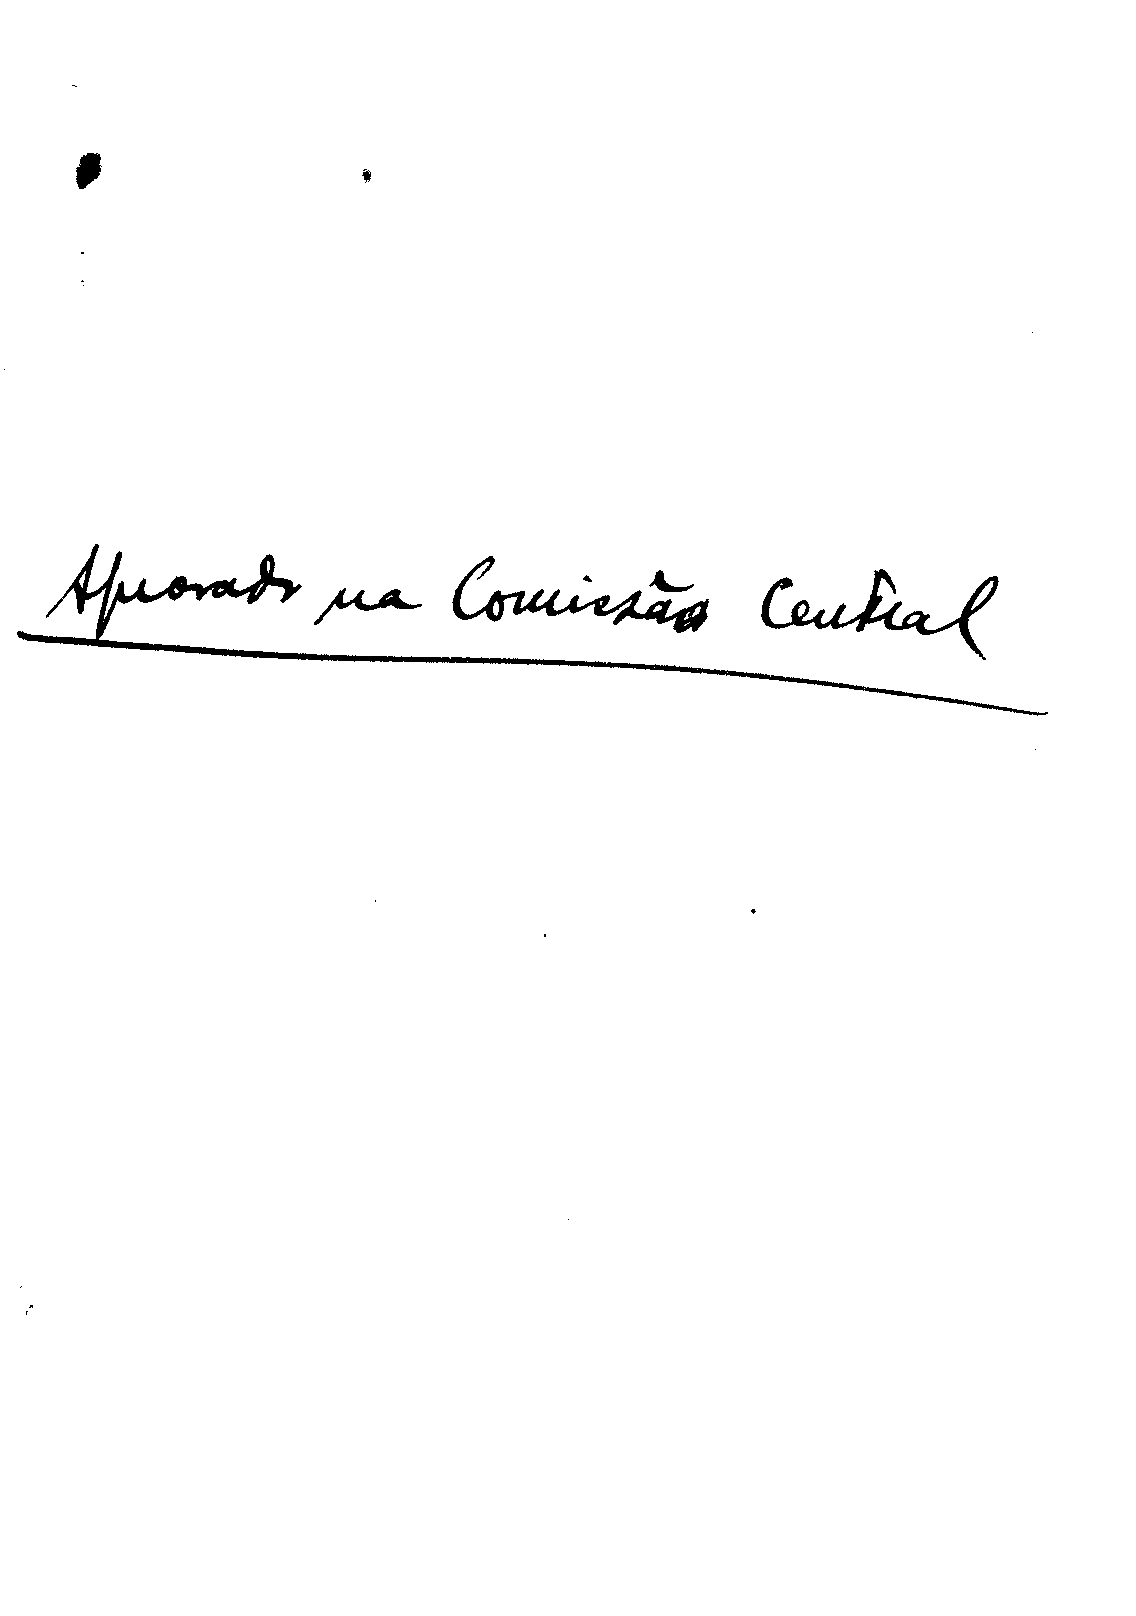 Aprovado na Comissão Central